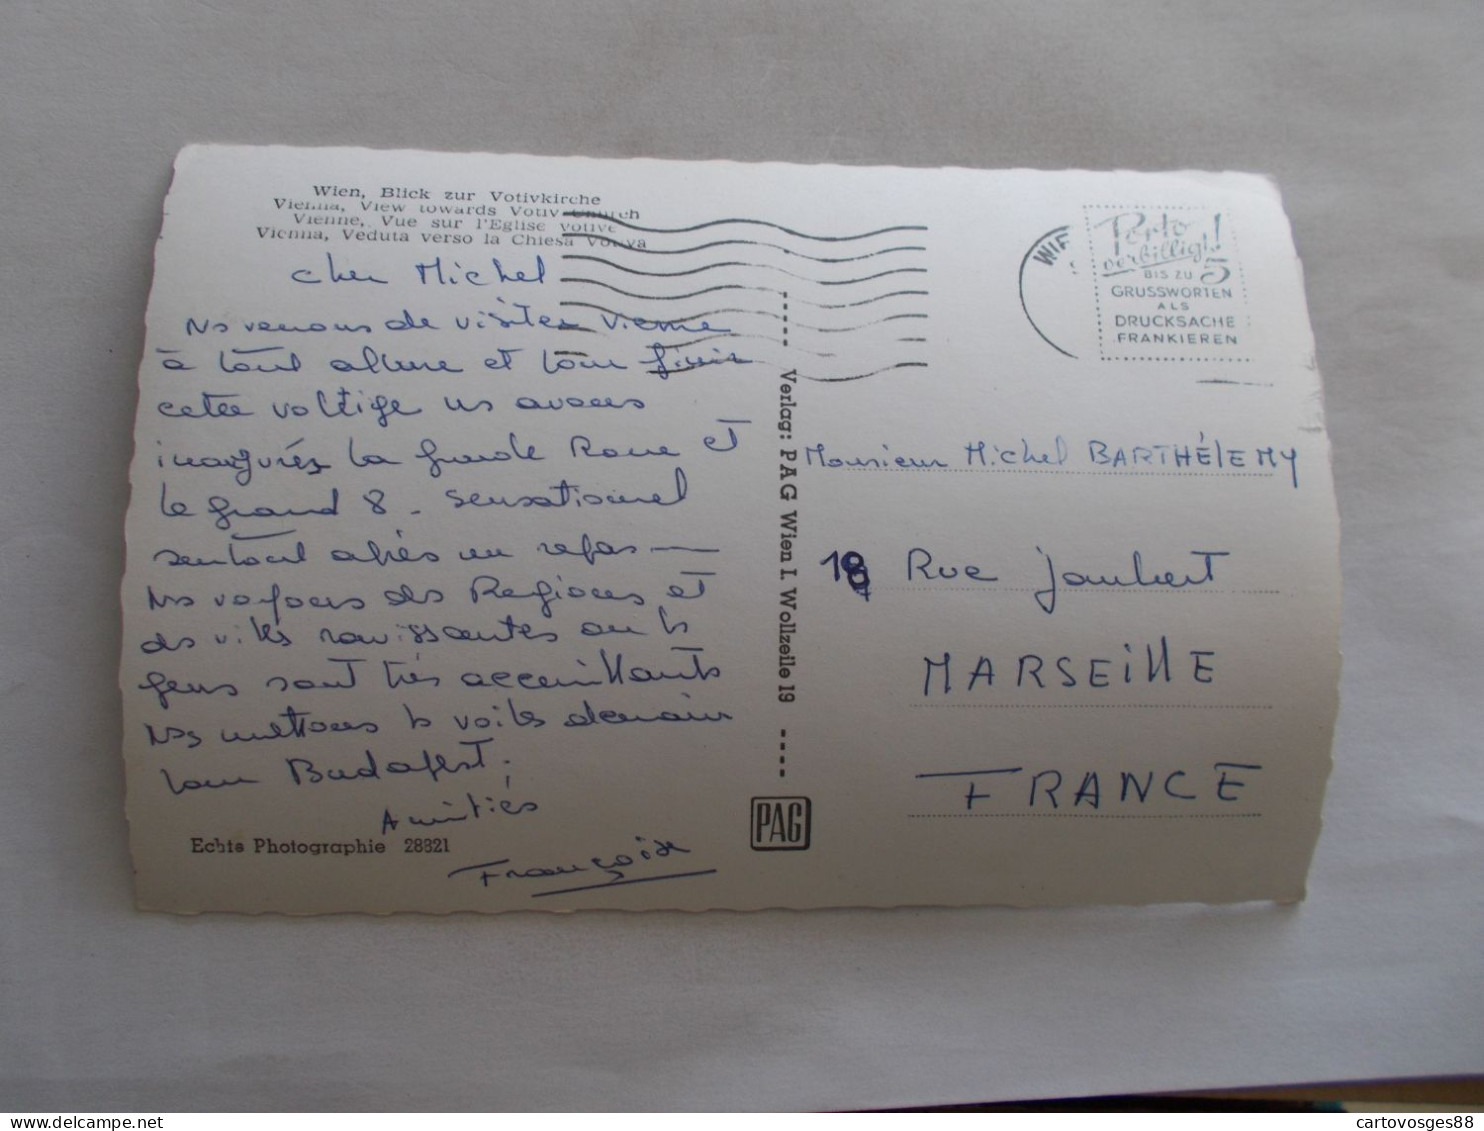 Wien, Blick zur Votivkirche
Vienna, View towards Votiv Church
Vienne, Vue sur l'Eglise votive
Vienna, Veduta verso la Chiesa Votiva
Cher Michel
Ns venons de visiter Vienne
à tout allure et pour finir
cette voltige ns avons
inaugurés la grande Roue et
le grand 8 - sensationnel
surtout après un repas —
Ns voyons des Regions et
des villes ravissantes où ls
gens sont très acceuillants
Ns mettons ls voiles demain
pour Budapest.
Amitiés
Françoise
Echte Photographie 28821
Verlag: PAG Wien I. Wollzeile 19
PAG
WIE
Porto
verbilligt!
BIS ZU 5
GRUSSWORTEN
ALS
DRUCKSACHE
FRANKIEREN
Monsieur Michel BARTHÉLEMY
18 Rue Joubert
MARSEILLE
FRANCE
cartovosges88